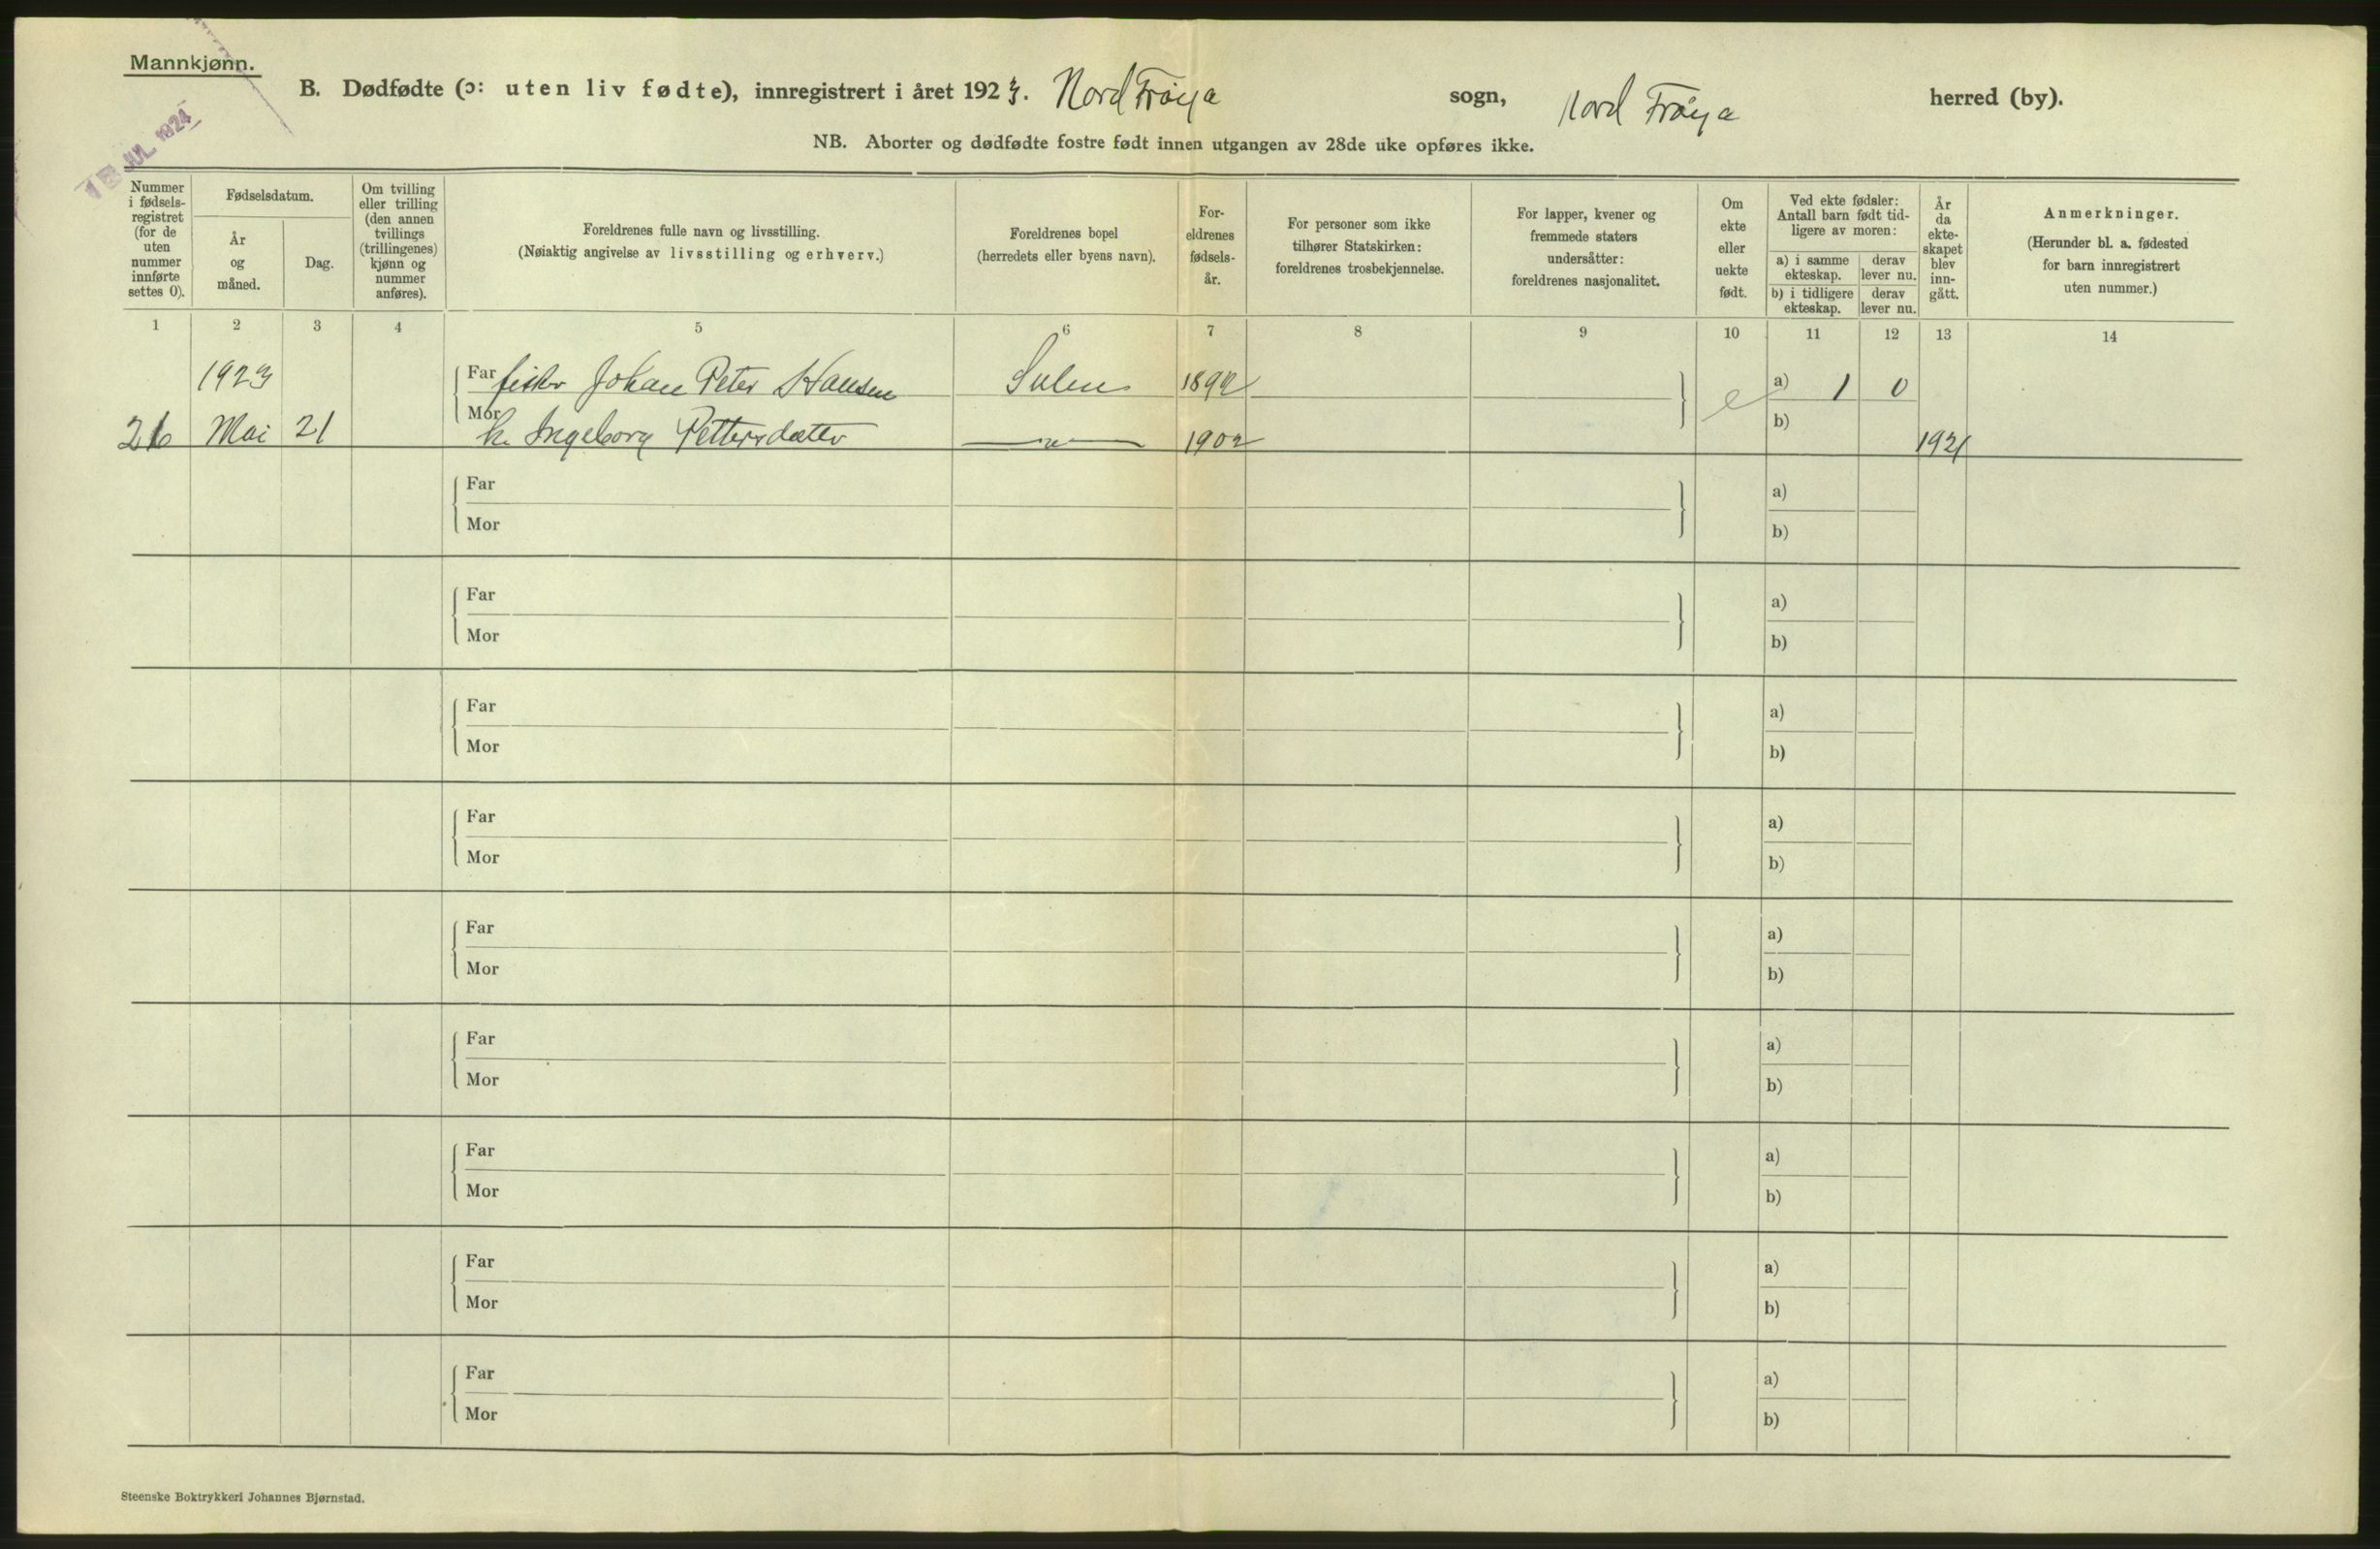 Mannkjønn.
18 JUL 1924
B. Dødfødte (ɔ: uten liv fødte), innregistrert i året 1923. Nord Frøya sogn, Nord Frøya herred (by).
NB. Aborter og dødfødte fostre født innen utgangen av 28de uke opføres ikke.
Nummer
i fødsels-
registret
(for de
uten
nummer
innførte
settes 0).
Fødselsdatum.
År
og
måned.
Dag.
Om tvilling
eller trilling
(den annen
tvillings
(trillingenes)
kjønn og
nummer
anføres).
Foreldrenes fulle navn og livsstilling.
(Nøiaktig angivelse av livsstilling og erhverv.)
Foreldrenes bopel
(herredets eller byens navn).
For-
eldrenes
fødsels-
år.
For personer som ikke
tilhører Statskirken:
foreldrenes trosbekjennelse.
For lapper, kvener og
fremmede staters
undersåtter:
foreldrenes nasjonalitet.
Om
ekte
eller
uekte
født.
Ved ekte fødsler:
Antall barn født tid-
ligere av moren:
a) i samme
ekteskap.
derav
lever nu.
b) i tidligere
ekteskap.
derav
lever nu.
År
da
ekte-
skapet
blev
inn-
gått.
Anmerkninger.
(Herunder bl. a. fødested
for barn innregistrert
uten nummer.)
1 2 3 4 5 6 7 8 9 10 11 12 13 14
1923 Far fisker Johan Peter Hansen Sulen e a) 1 0
26 Mai 21 Mor h. Ingeborg Pettersdatter —"— 1902 b) 1921
Far a)
Mor b)
Far a)
Mor b)
Far a)
Mor b)
Far a)
Mor b)
Far a)
Mor b)
Far a)
Mor b)
Far a)
Mor b)
Far a)
Mor b)
Far a)
Mor b)
Steenske Boktrykkeri Johannes Bjørnstad.